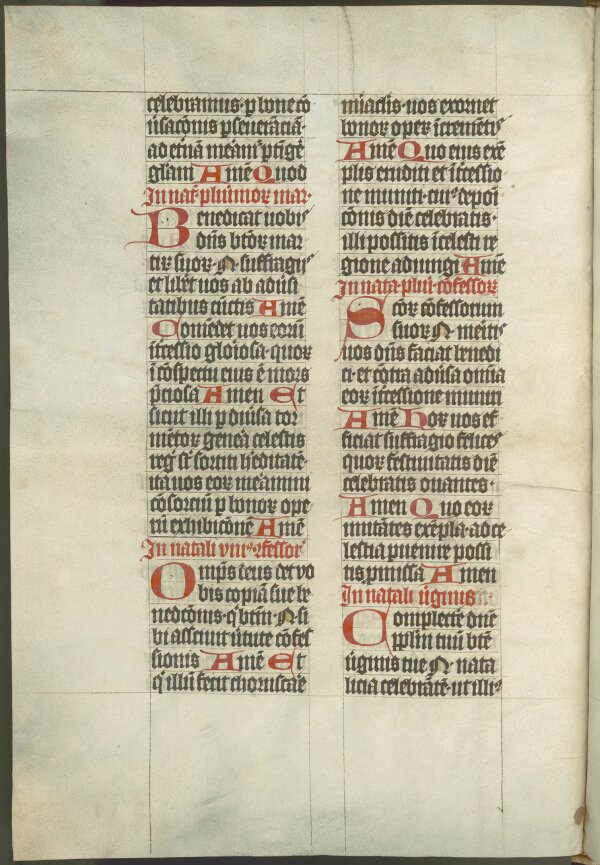 celebramus· p bone cō
ūsacōnis pseuerāciā·
ad etnā meam' ptīge
gliam Amē Quod
In nat' plurimor mar·
Benedicat uobis
dn̄s btōr mar
tir suor· N· suffragiis
et libet uos ab aduersi
tatibus cūctis Amē
Comēdet uos eorū
ītcessio gloiosa· quor
ī cōspectu eius ē mors
pciosa Amen Et
sicut illi p diūsa tor
mētor genera celestis
regī st' sortiti h'editatē·
ita uos eor meamini
cōsorciū p bonor ope
rū exhibicōnē Amē
In natali vniꝰ ꝯfessorꝭ
Omp̄s deus det vo
bis copiā sue be
nedcōnis· q btm̄· N· si
bi asciuit ūtute cōfes
sionis Amē Et
q illū fecit choruscare
miaclis· uos exornet
bonor oper icremētis
Amē Quo eius exē
plis eruditi et ītcessio
ne muniti· cuiꝰ depoī
cōnis diē celebratis·
illi possitis ī celesti re
gione adiungi Amē
In nata· pluī· cōfessorꝝ
Scōr cōfessorum
suor N· meritis
uos dn̄s faciat benedi
ci· et cōtra aduersa omnia
eor ītcessione muniri
Amē Hor uos ef
ficiat suffragio felices
quor festiuitatis diē
celebratis ouantes·
Amen Quo eor
imitātes exēpla· ad ce
lestia puenire possi
tis pmissa Amen
In natali ūginis
Complecēe dn̄e
pplm tuū btē
ūginis tue N· nata
licia celebrātē· ut illiꝰ